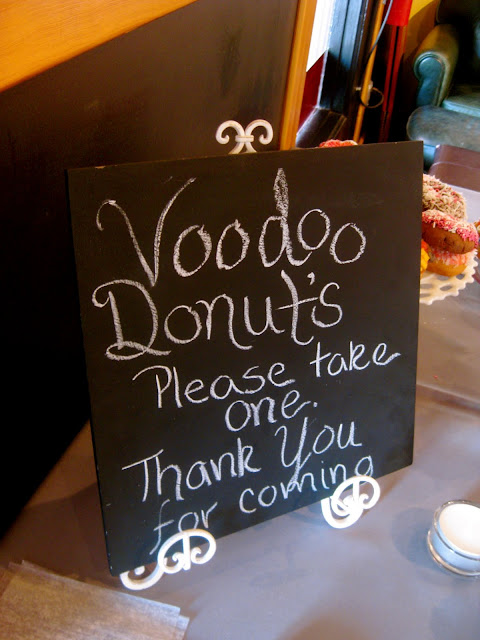 Voodoo
Donut's
Please take
one.
Thank You
for coming